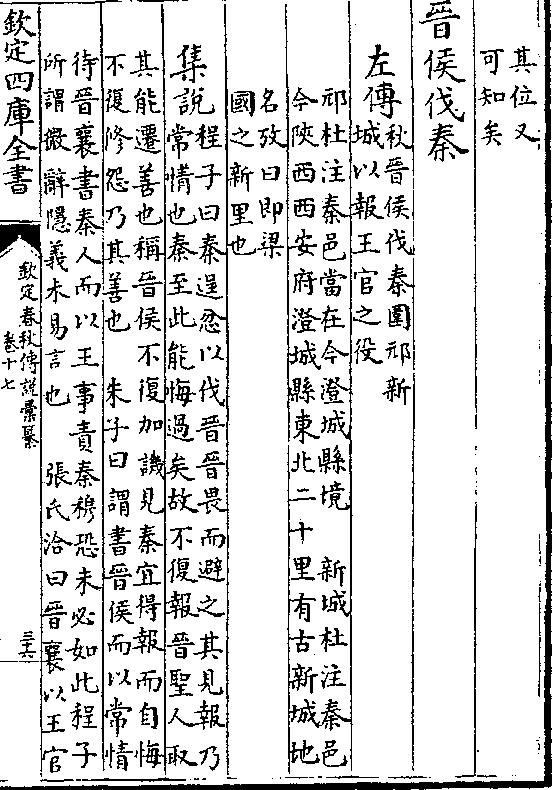 其位又
可知矣
晉侯伐秦
左傳秋晉侯伐秦圍邧新
城以報王官之役
邧杜注秦邑當在今澄城縣境　新城杜注秦邑
今陝西西安府澄城縣東北二十里有古新城地
名攷曰即梁
國之新里也
集說程子曰秦逞忿以伐晉晉畏而避之其見報乃
常情也秦至此能悔過矣故不復報晉聖人取
其能遷善也稱晉侯不復加譏見秦宜得報而自悔
不復修怨乃其善也　朱子曰謂書晉侯而以常情
待晉襄書秦人而以王事責秦穆恐未必如此程子
所謂微辭隱義未易言也　張氏洽曰晉襄以王官
欽定四庫全書
欽定春秋傳說彙纂
卷十七
三六